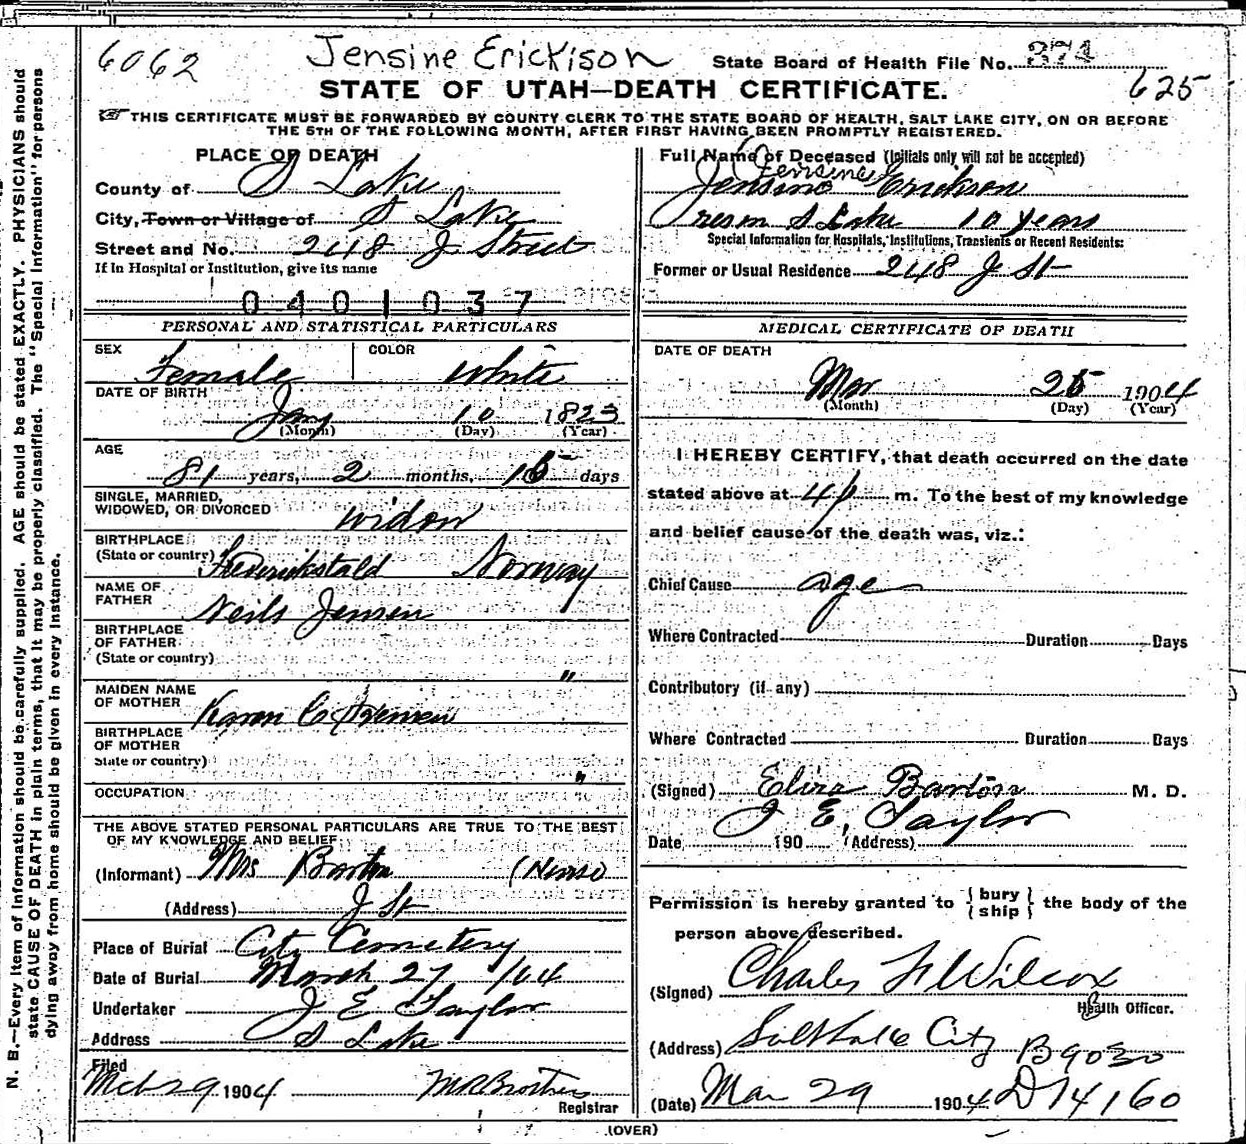 6062 Jensine Erickison State Board of Health File No. 374
625
STATE OF UTAH—DEATH CERTIFICATE.
THIS CERTIFICATE MUST BE FORWARDED BY COUNTY CLERK TO THE STATE BOARD OF HEALTH, SALT LAKE CITY, ON OR BEFORE
THE 5TH OF THE FOLLOWING MONTH, AFTER FIRST HAVING BEEN PROMPTLY REGISTERED.
PLACE OF DEATH
County of S Lake
City, Town or Village of S Lake
Street and No. 248 J Street
If in Hospital or Institution, give its name
0401037
Full Name of Deceased (Initials only will not be accepted)
Jensine
Jensine Erickson
Resin S Lake 10 years
Special Information for Hospitals, Institutions, Transients or Recent Residents:
Former or Usual Residence 248 J St
PERSONAL AND STATISTICAL PARTICULARS
SEX Female COLOR White
DATE OF BIRTH
Jany 10 1823
(Month) (Day) (Year)
AGE
81 years, 2 months, 15 days
SINGLE, MARRIED,
WIDOWED, OR DIVORCED widow
BIRTHPLACE
(State or country) Frederikstald Norway
NAME OF
FATHER Neils Jensen
BIRTHPLACE
OF FATHER
(State or country) "
MAIDEN NAME
OF MOTHER Karen C
BIRTHPLACE
OF MOTHER
State or country) "
OCCUPATION
THE ABOVE STATED PERSONAL PARTICULARS ARE TRUE TO THE BEST
OF MY KNOWLEDGE AND BELIEF
(Informant) Mrs Barton (Nurse
(Address) J St
Place of Burial City Cemetery
Date of Burial March 27 /04
Undertaker J E Taylor
Address S Lake
Filed
Mch 29 1904
Registrar
MEDICAL CERTIFICATE OF DEATH
DATE OF DEATH
Mar 25 1904
(Month) (Day) (Year)
I HEREBY CERTIFY, that death occurred on the date
stated above at 4 p m. To the best of my knowledge
and belief cause of the death was, viz.:
Chief Cause age
Where Contracted Duration Days
Contributory (if any)
Where Contracted Duration Days
(Signed) Eliza Barton M. D.
J E, Taylor
Date 190 (Address)
Permission is hereby granted to { bury / ship } the body of the
person above described.
(Signed) Charles F Wilcox
Health Officer.
(Address) Salt Lake City B9030
(Date) Mar 29 1904 D14160
(OVER)
N. B.—Every item of information should be carefully supplied. AGE should be stated EXACTLY. PHYSICIANS should
state CAUSE OF DEATH in plain terms, that it may be properly classified. The "Special Information" for persons
dying away from home should be given in every instance.